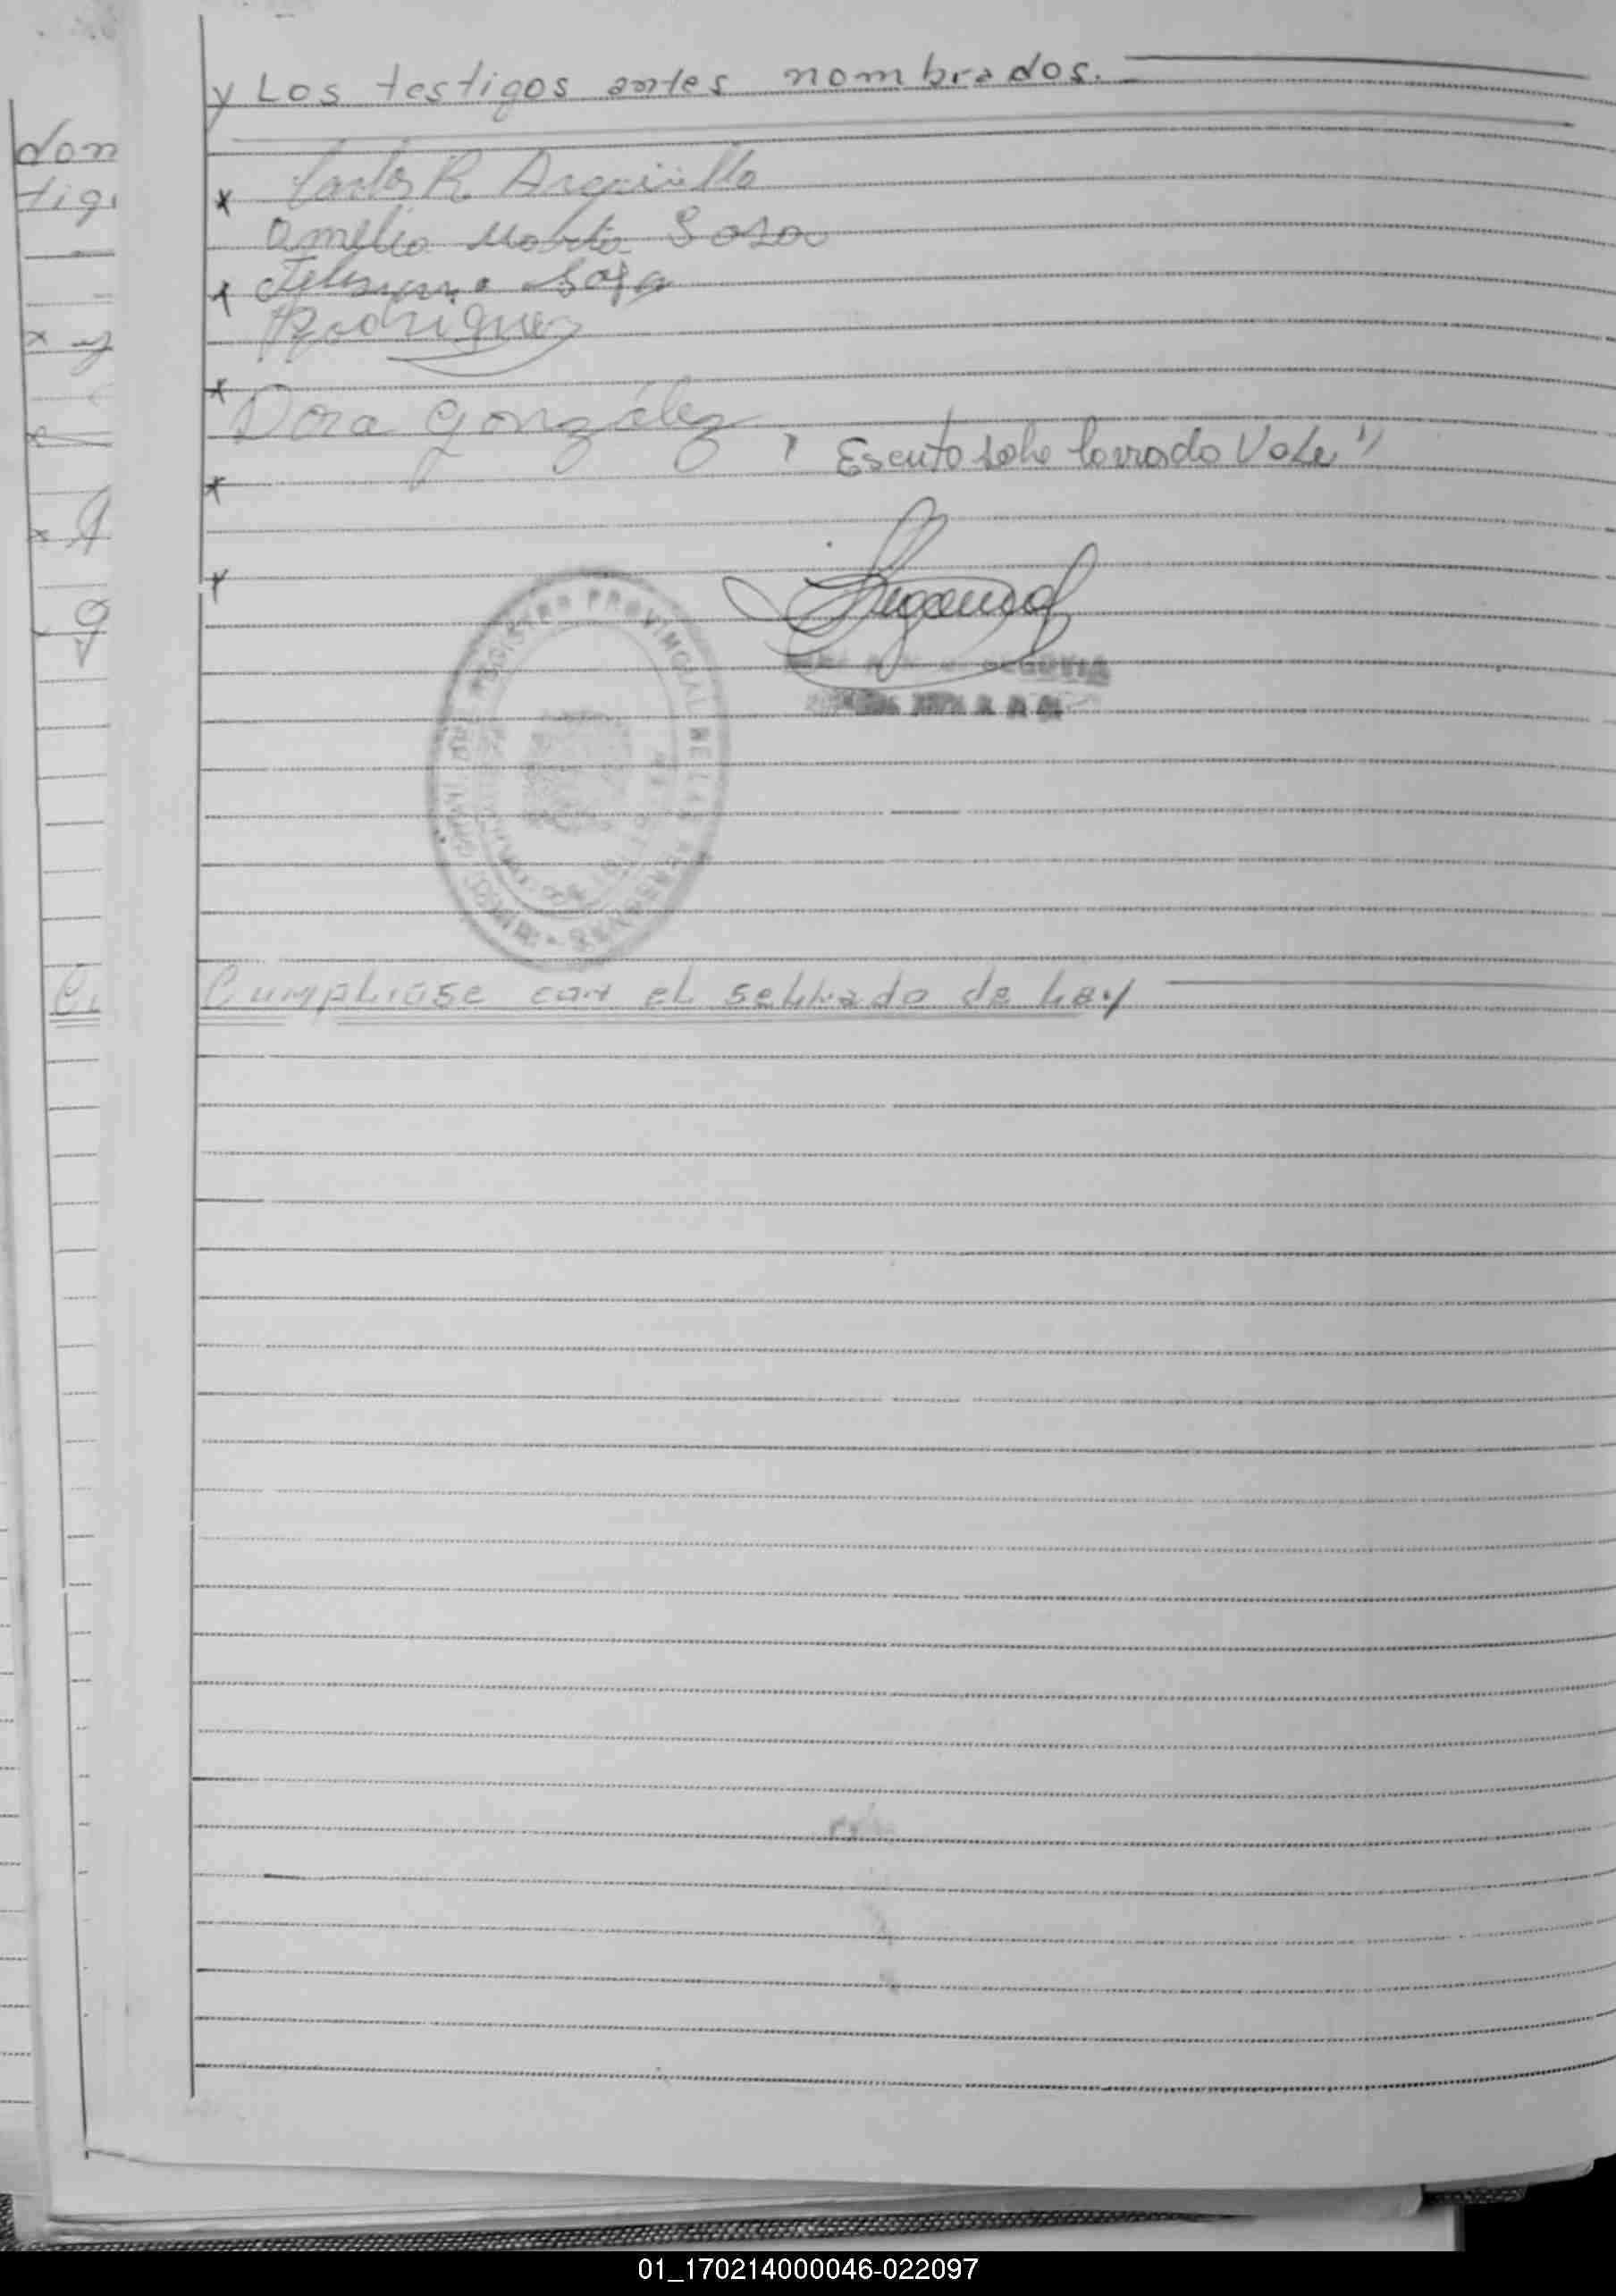 y Los testigos antes nombrados.
don
tigi
x Carlos R. Arguello
Amelia Marta Sosa
x Sosa
Rodriguez
x
Dora González
" Escrito sobre borrado Vale"
x
x
REGISTRO PROVINCIAL DE LAS PERSONAS
SEGOVIA
Cumpliose con el sellado de Ley
01_170214000046-022097